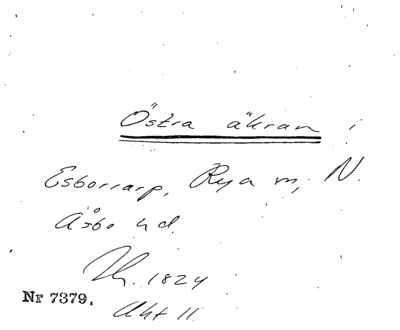 Östra åkran i
Esborrarp, Rya m, N.
Åsbo hd.
1824
Nr 7379. Akt 11